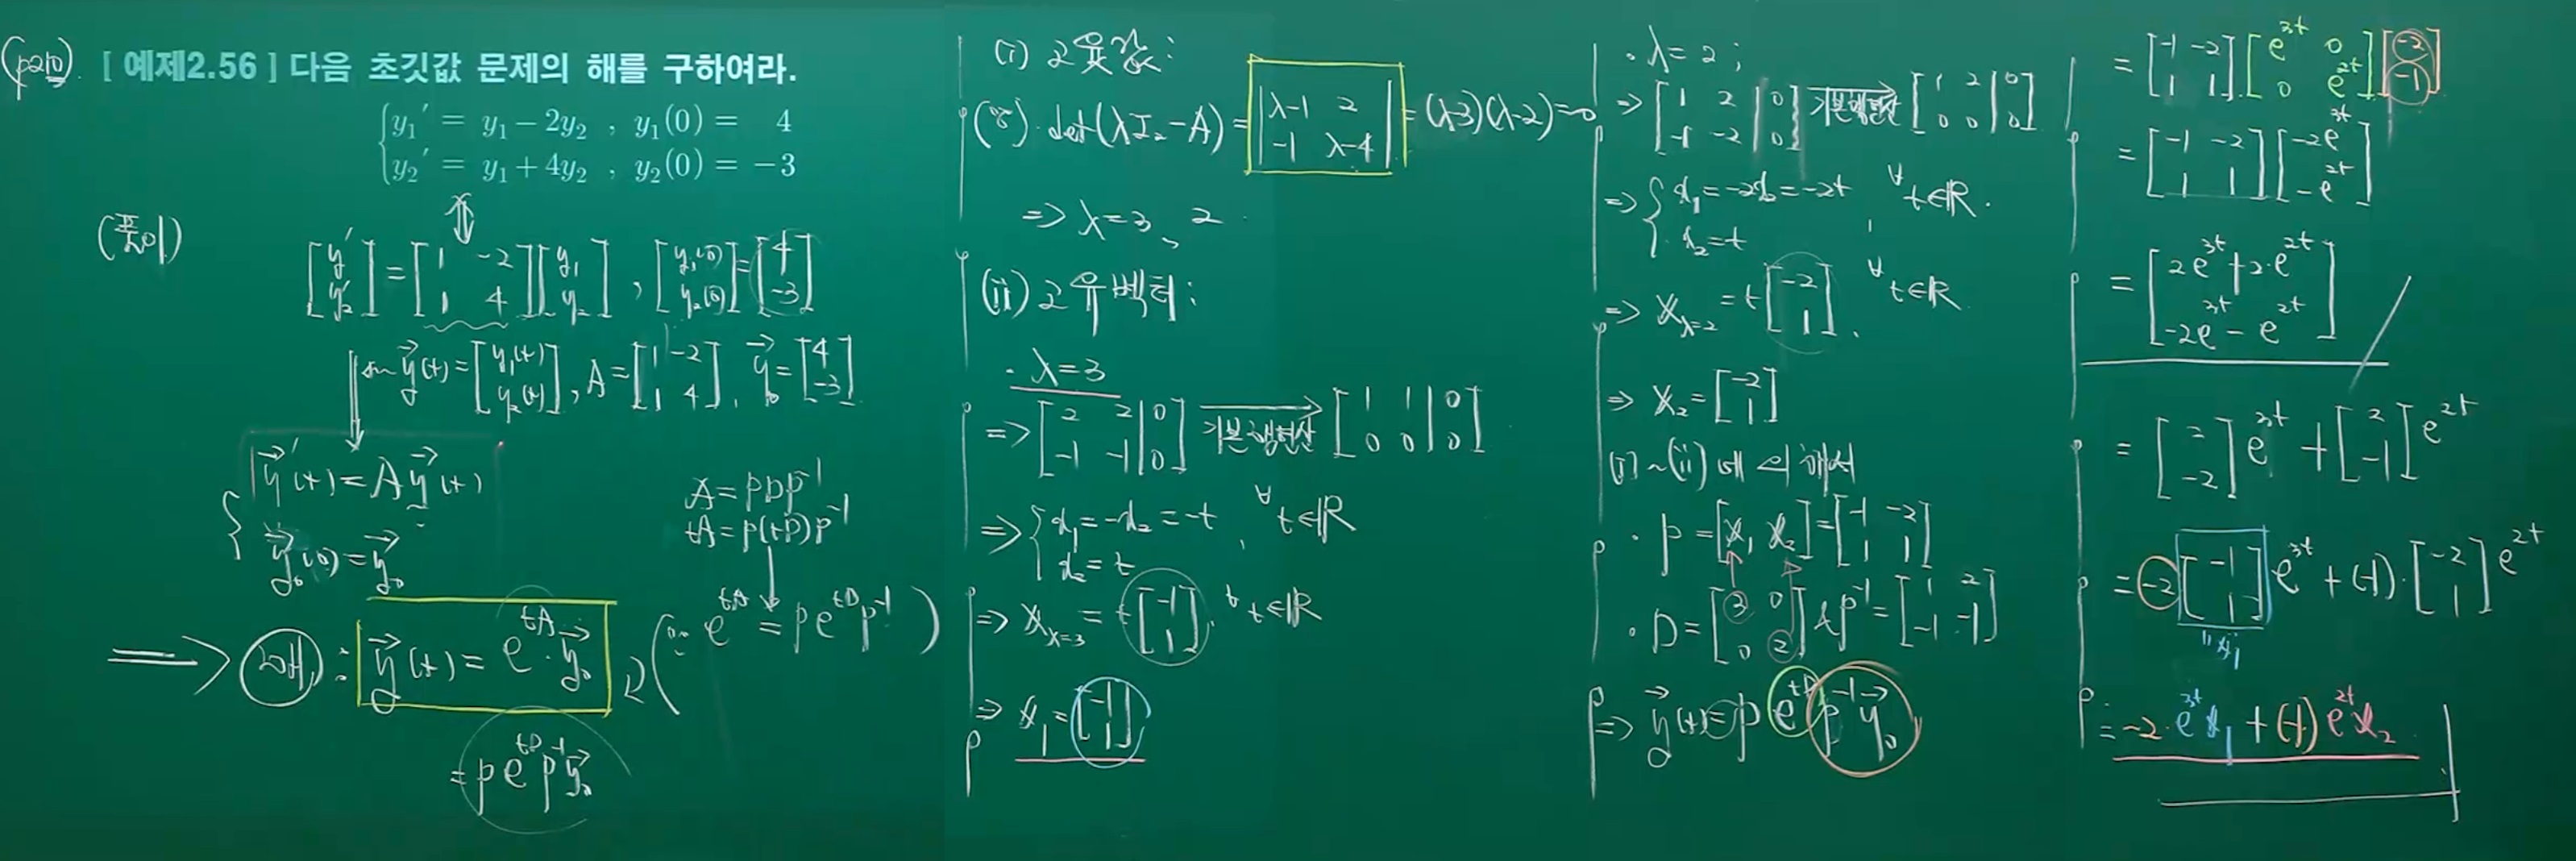 (p210). [ 예제2.56 ] 다음 초깃값 문제의 해를 구하여라.
{ y₁′ = y₁ − 2y₂ , y₁(0) = 4
y₂′ = y₁ + 4y₂ , y₂(0) = −3
⇕
(풀이)
[y₁′; y₂′] = [1 -2; 1 4][y₁; y₂], [y₁(0); y₂(0)] = [4; -3]
y⃗(t) = [y₁(t); y₂(t)], A = [1 -2; 1 4], y⃗₀ = [4; -3]
{ y⃗′(t) = Ay⃗(t)
y⃗(0) = y⃗₀
A = PDP⁻¹
tA = P(tD)P⁻¹
⟹ 해 : y⃗(t) = e^{tA}·y⃗₀ (∵ e^{tA} = Pe^{tD}P⁻¹)
= Pe^{tD}P⁻¹y⃗₀
(i) 고윳값:
det(λI₂-A) = |λ-1 2; -1 λ-4| = (λ-3)(λ-2) = 0
⇒ λ = 3, 2
(ii) 고유벡터:
· λ = 3
⇒ [2 2 | 0; -1 -1 | 0] → 기본행연산 [1 1 | 0; 0 0 | 0]
⇒ { x₁ = -x₂ = -t, ∀t∈ℝ
x₂ = t
⇒ X_{λ=3} = t[-1; 1], ∀t∈ℝ
⇒ X₁ = [-1; 1]
· λ = 2;
⇒ [1 2 | 0; -1 -2 | 0] → 기본행연산 [1 2 | 0; 0 0 | 0]
⇒ { x₁ = -2x₂ = -2t, ∀t∈ℝ.
x₂ = t
⇒ X_{λ=2} = t[-2; 1], ∀t∈ℝ
⇒ X₂ = [-2; 1]
(i)~(ii)에 의해서
· P = [X₁ X₂] = [-1 -2; 1 1]
· D = [3 0; 0 2] & P⁻¹ = [1 2; -1 -1]
⇒ y⃗(t) = Pe^{tD}P⁻¹y⃗₀
= [-1 -2; 1 1][e^{3t} 0; 0 e^{2t}][-2; -1]
= [-1 -2; 1 1][-2e^{3t}; -e^{2t}]
= [2e^{3t}+2·e^{2t}; -2e^{3t}-e^{2t}]
= [2; -2]e^{3t} + [2; -1]e^{2t}
= -2[-1; 1]e^{3t} + (-1)·[-2; 1]e^{2t}
"X₁
= -2·e^{3t}X₁ + (-1)e^{2t}X₂